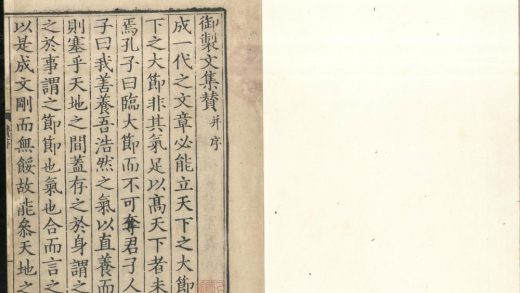 御製文集賛并序
成一代之文章必能立天下之大節
下之大節非其氣足以髙天下者未
焉孔子曰臨大節而不可奪君子人
子曰我善養吾浩然之氣以直養而
則塞乎天地之間蓋存之於身謂之
之於事謂之節節也氣也合而言之
以是成文剛而無餒故能叅天地之